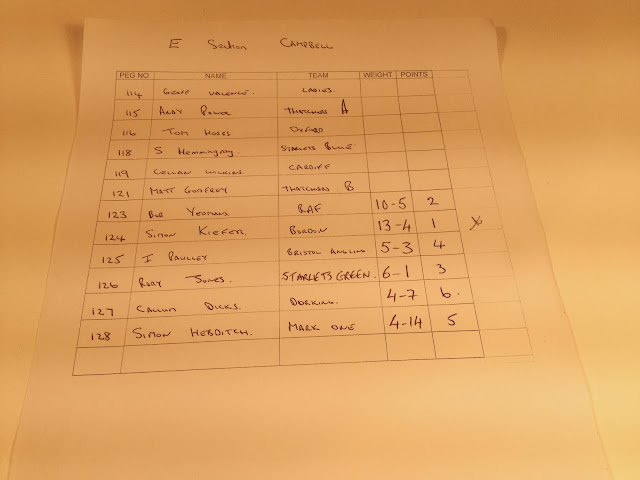 E Section CAMPBELL
PEG NO NAME TEAM WEIGHT POINTS
114 GEOFF VALENCE. LADIES.
115 ANDY POWER THATCHERS A
116 TOM MOSES OXFORD
118 S Hemmingray. STARLETS BLUE
119 WILKINS CARDIFF
121 MATT GODFREY THATCHERS B
123 BOB YEOMANS. RAF 10-5 2
124 SIMON KIEFER. BORDON 13-4 1 X
125 I PAULLEY BRISTOL ANGLING 5-3 4
126 RORY JONES. STARLETS GREEN. 6-1 3
127 CALLUM DICKS. DORKING. 4-7 6.
128 SIMON HEBDITCH. MARK ONE 4-14 5